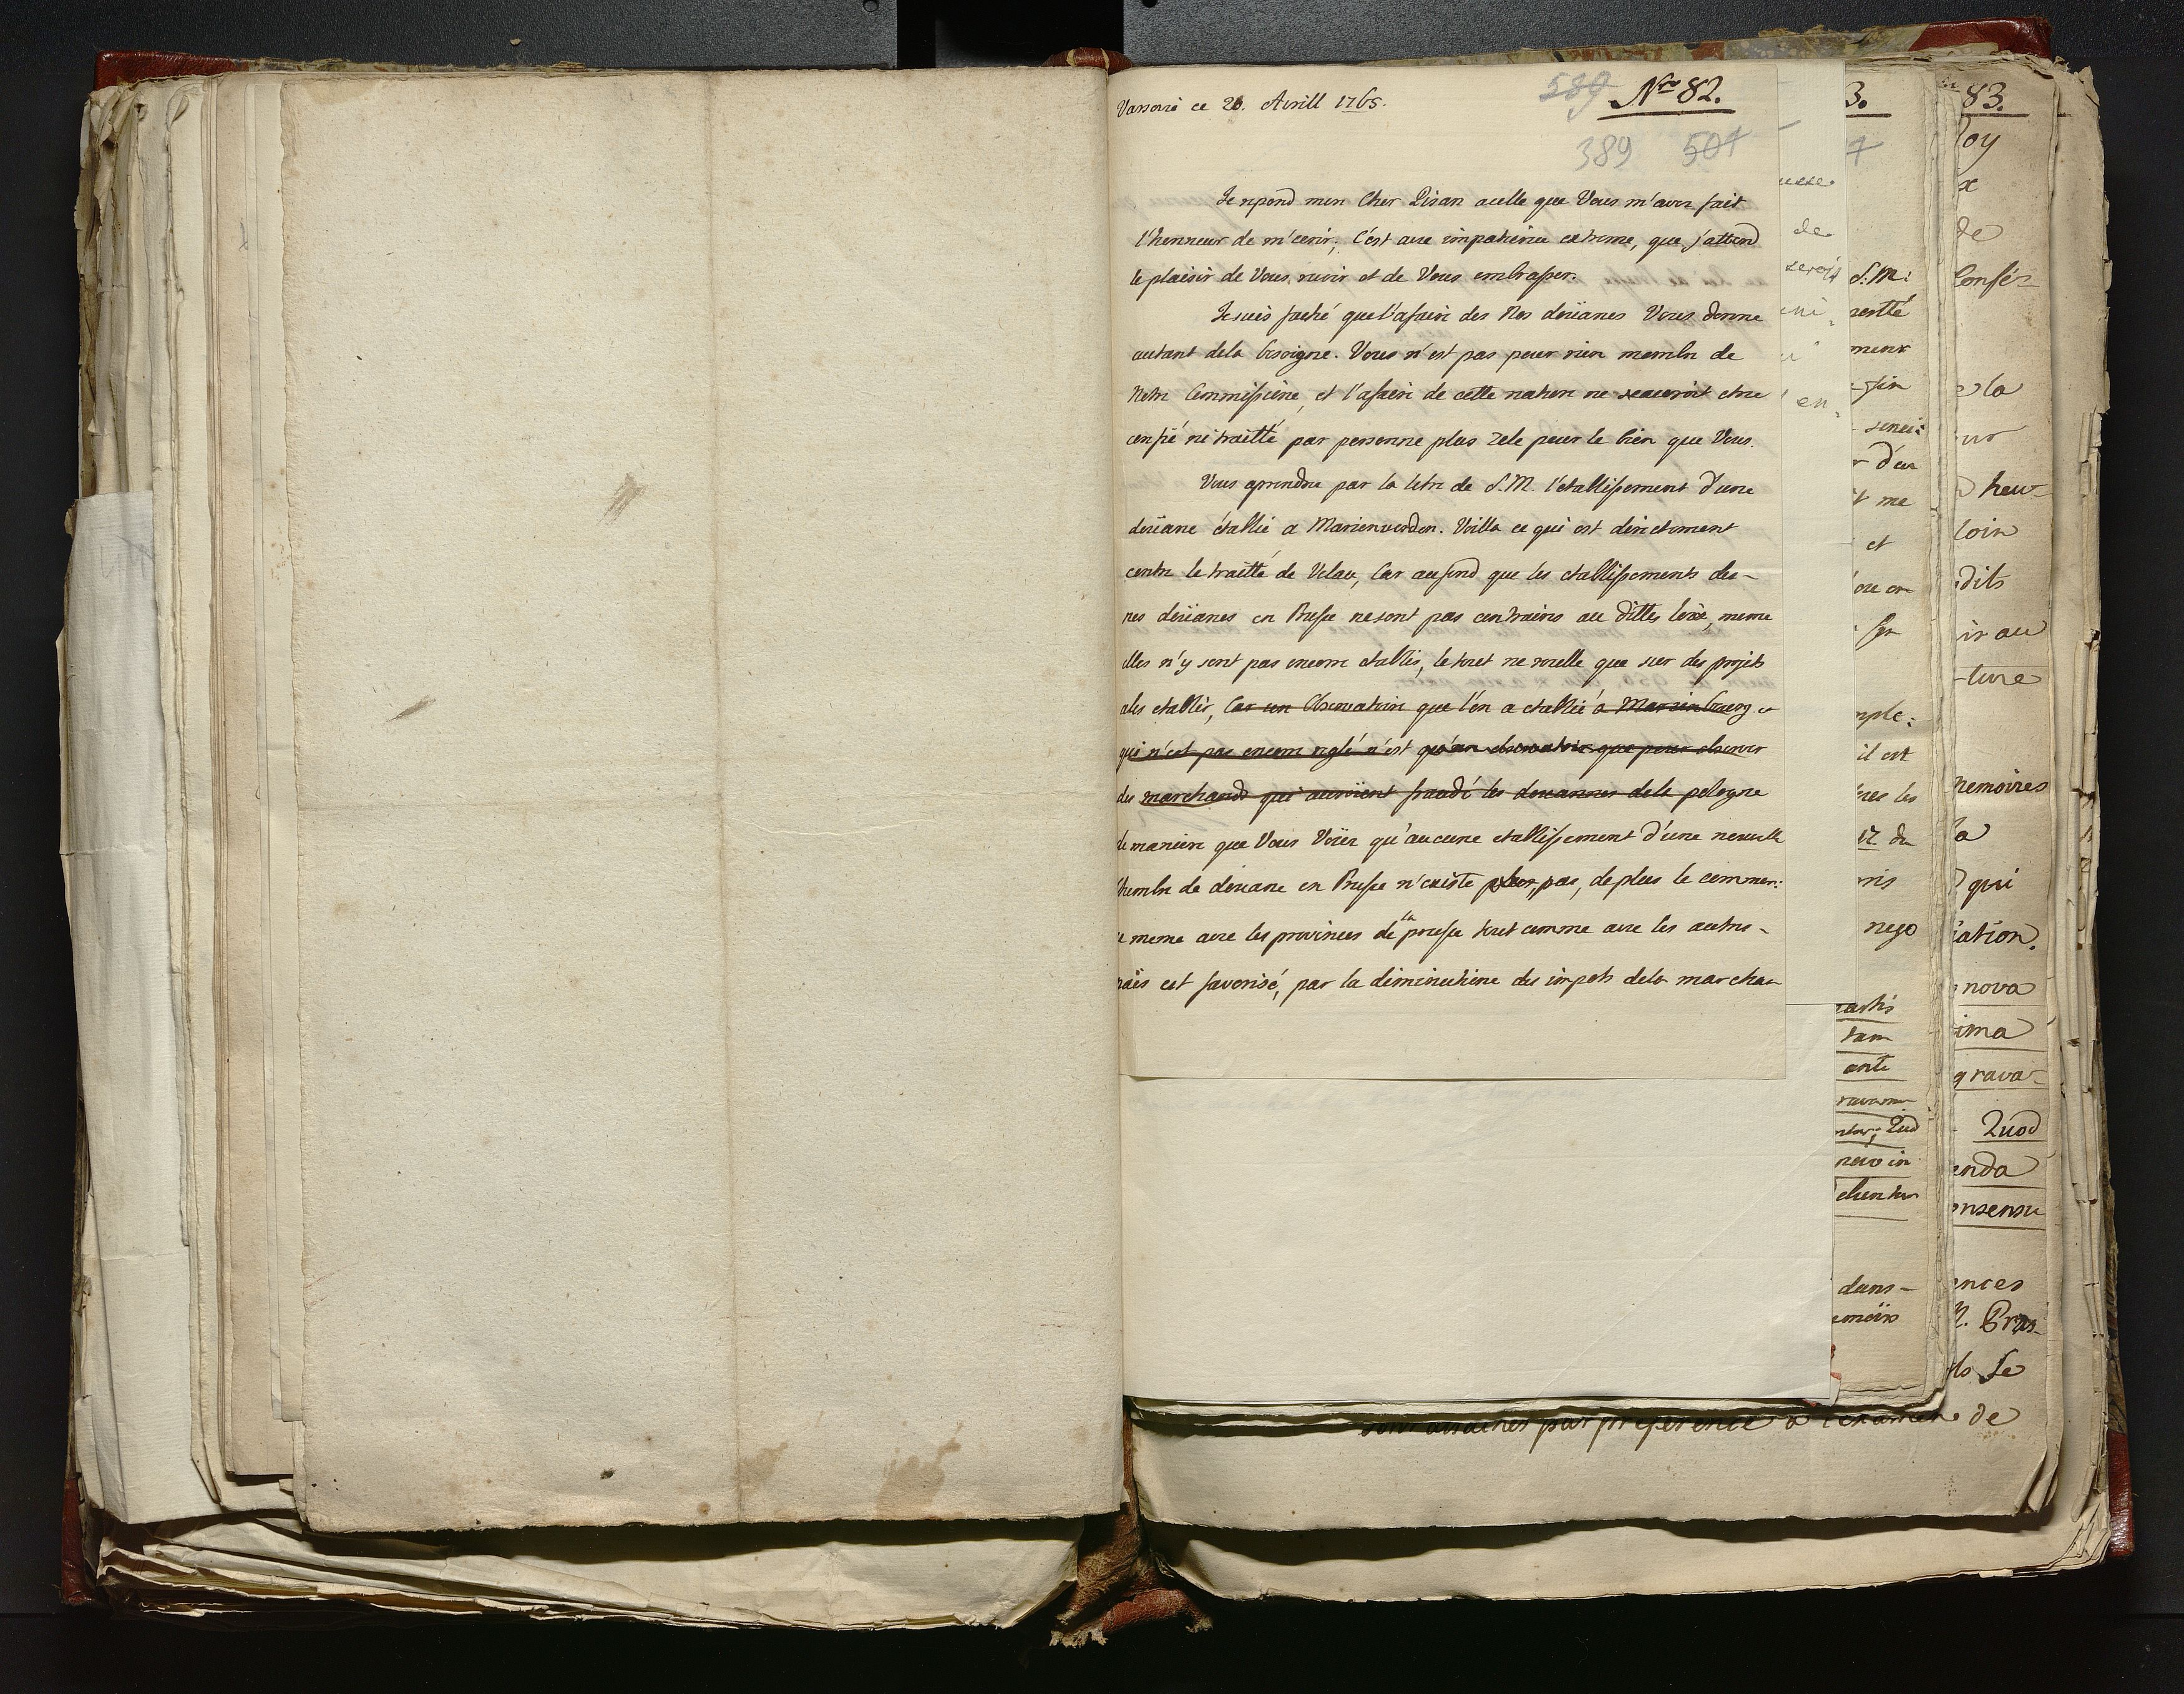 Varsovie ce 20. Avrill 1765.
589 Nro 82.
389 507
Je repond mon Cher Pisan acelle que Vous m'avez fait
l'honneur de m'ecrir; C'est avec impatience extreme, que j'attend
le plaisir de Vous revoir et de Vous embrasser.
Je suis faché que l'afaire des Nos doüanes Vous donne
autant dela besoigne. Vous n'est pas pour rien membre de
Notre Commissione, et l'afaire de cette nation ne scauroit etre
confié ni traitté par personne plus Zele pour le bien que Vous.
Vous aprendre par la letre de S. M. l'etablissement d'une
doüane établie a Marienverder. Voilla ce qui est directement
contre le traitté de Velau, Car aufond que les etablissements de-
nos doüanes en Prusse ne sont pas contraires au dittes
elles n'y sont pas encore etablis, le tout ne roulle que sur des projets
ales etablir, Car un Observatoire que l'on a etablié a Marienbourg
qui n'est pas encore reglé n'est qu'un observatoir que pour observer
des marchands qui auroient fraudé les douannes dela pologne
de maniere que Vous Voiez qu'aucune etablissement d'une nouvelle
Chembre de douane en Prusse n'existe plus, pas, de plus le commer:
ce meme avec les provinces de la prusse tout comme avec les autres-
païs est favorisé, par la diminutione des impots dela marchan
3.
7
S. M:
restté
ment
et
il est
nego
tam
dans-
83.
Roy
x
de
Consé-
la
heu-
loin
dits
ir au
-ture
memoires
la
qui
iation.
nova
ima
grava-
Quod
enda
onsensu
ences
Se
par preference a l'examen de